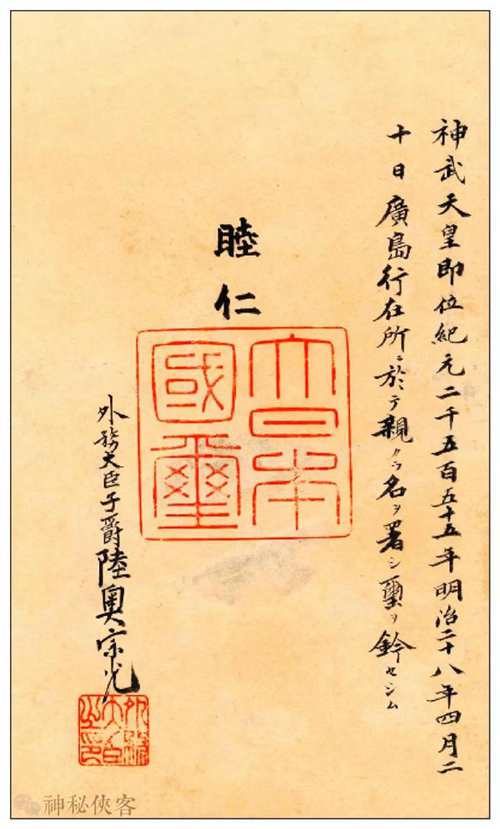 神武天皇即位紀元二千五百五十五年明治二十八年四月二
十日廣島行在所ニ於テ親ラ名ヲ署シ璽ヲ鈐セシム
睦仁
大日本
國璽
外務大臣子爵陸奥宗光
外務
大臣
之印
神秘俠客